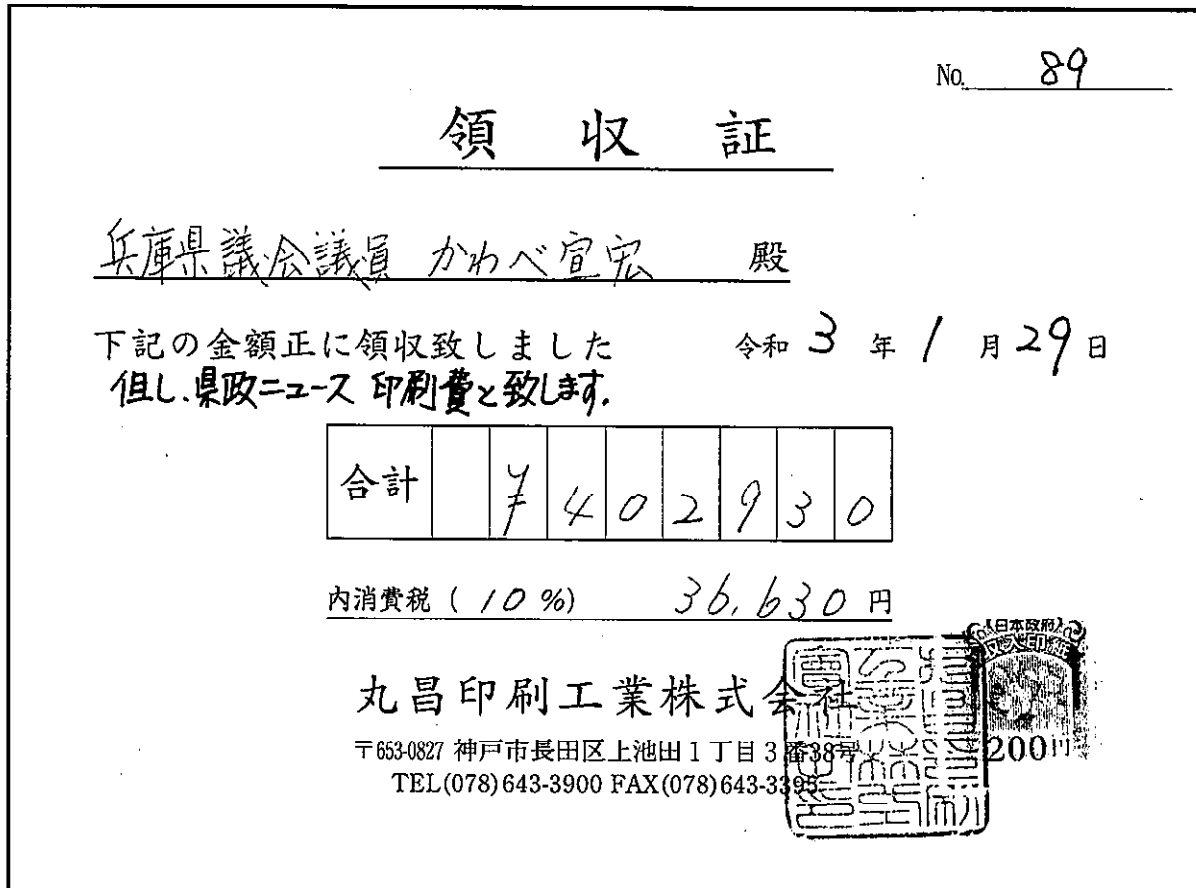 No. 89
領収証
兵庫県議会議員 かわべ宣宏 殿
下記の金額正に領収致しました 令和 3 年 1 月 29 日
但し、県政ニュース 印刷費と致します。
合計 ¥402930
内消費税 (10%) 36,630 円
丸昌印刷工業株式会社
〒653-0827 神戸市長田区上池田1丁目3番38号
TEL(078)643-3900 FAX(078)643-3395
日本政府
収入印紙
200円